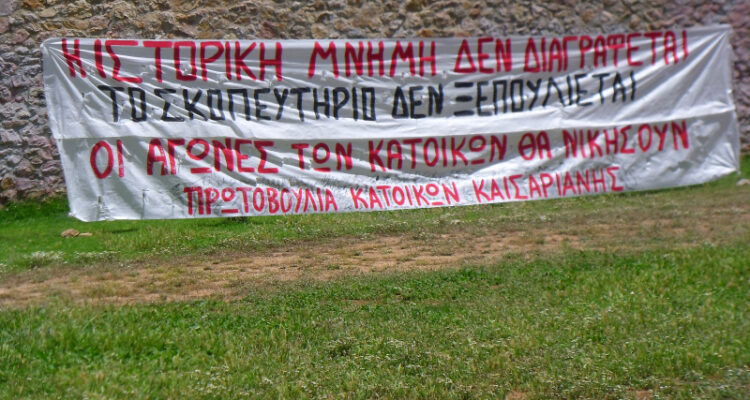 Η ΙΣΤΟΡΙΚΗ ΜΝΗΜΗ ΔΕΝ ΔΙΑΓΡΑΦΕΤΑΙ
ΤΟ ΣΚΟΠΕΥΤΗΡΙΟ ΔΕΝ ΞΕΠΟΥΛΙΕΤΑΙ
ΟΙ ΑΓΩΝΕΣ ΤΩΝ ΚΑΤΟΙΚΩΝ ΘΑ ΝΙΚΗΣΟΥΝ
ΠΡΩΤΟΒΟΥΛΙΑ ΚΑΤΟΙΚΩΝ ΚΑΙΣΑΡΙΑΝΗΣ